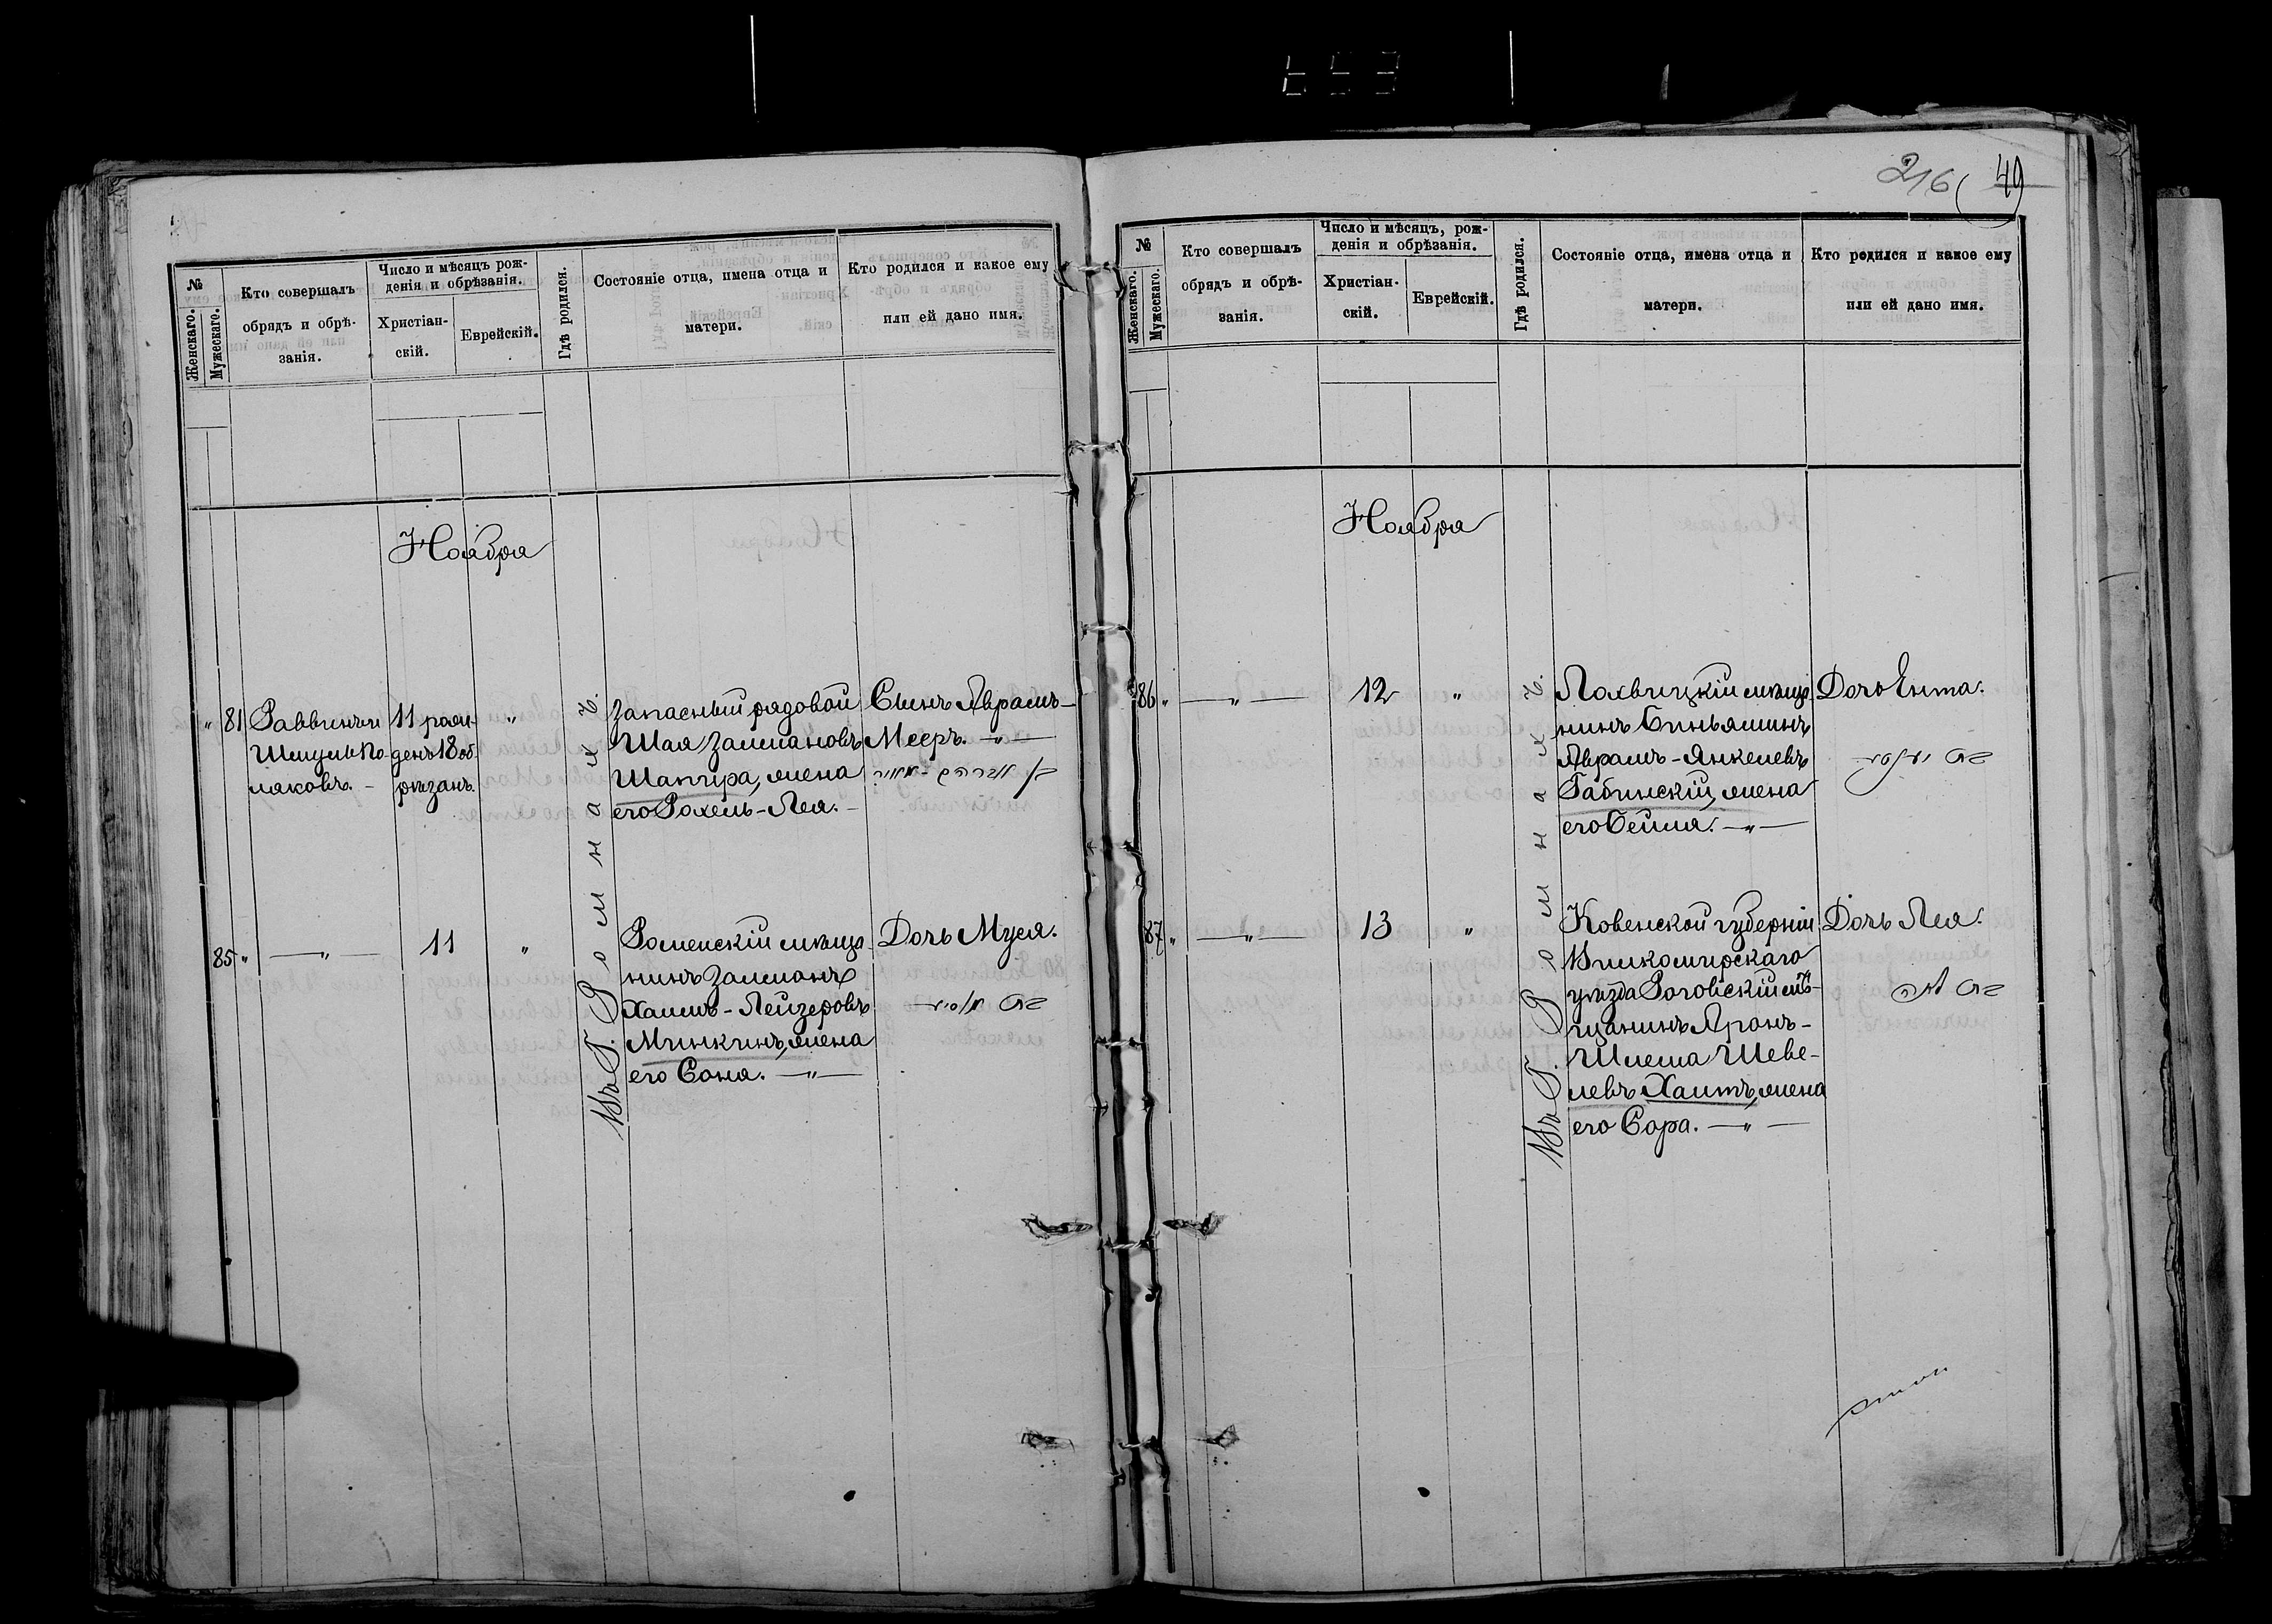 №
Женскаго.
Мужескаго.
Кто совершалъ
обрядъ и обрѣ-
занія.
Число и мѣсяцъ рож-
денія и обрѣзанія.
Христіан-
скій.
Еврейскій.
Гдѣ родился.
Состояніе отца, имена отца и
матери.
Кто родился и какое ему
или ей дано имя.
Ноября
" 81
Раввинъ и
Шмуль По-
ляковъ. -
11 рож-
денъ 18 об-
рѣзанъ.
"
Въ Г. Ромнахъ.
Запасный рядовой
Шая Залмановъ
Шапира, жена
его Рохель-Лея. -
Сынъ Аврамъ-
Мееръ. - " -
בן אברהם - מאיר
85 "
- " -
11
"
Роменскій мѣща-
нинъ Залманъ
Хаимъ-Лейзеровъ
Минкинъ, жена
его Соня. - " -
Дочь Муся.
בת מוסיא
216 49
№
Женскаго.
Мужескаго.
Кто совершалъ
обрядъ и обрѣ-
занія.
Число и мѣсяцъ, рож-
денія и обрѣзанія.
Христіан-
скій.
Еврейскій.
Гдѣ родился.
Состояніе отца, имена отца и
матери.
Кто родился и какое ему
или ей дано имя.
Ноября
86 "
- " -
12
"
Въ Г. Ромнахъ.
Лохвицкій мѣща-
нинъ Биньяминъ
Аврамъ-Янкелевъ
Габинскій, жена
его Бейля. - " -
Дочь Ента.
בת
87 "
- " -
13
"
Ковенской губерніи
Вилкомирскаго
уѣзда Роговскій мѣ-
щанинъ Аронъ-
Шлема Шеве-
левъ Хаитъ, жена
его Сора. - " -
Дочь Лея.
בת לאה